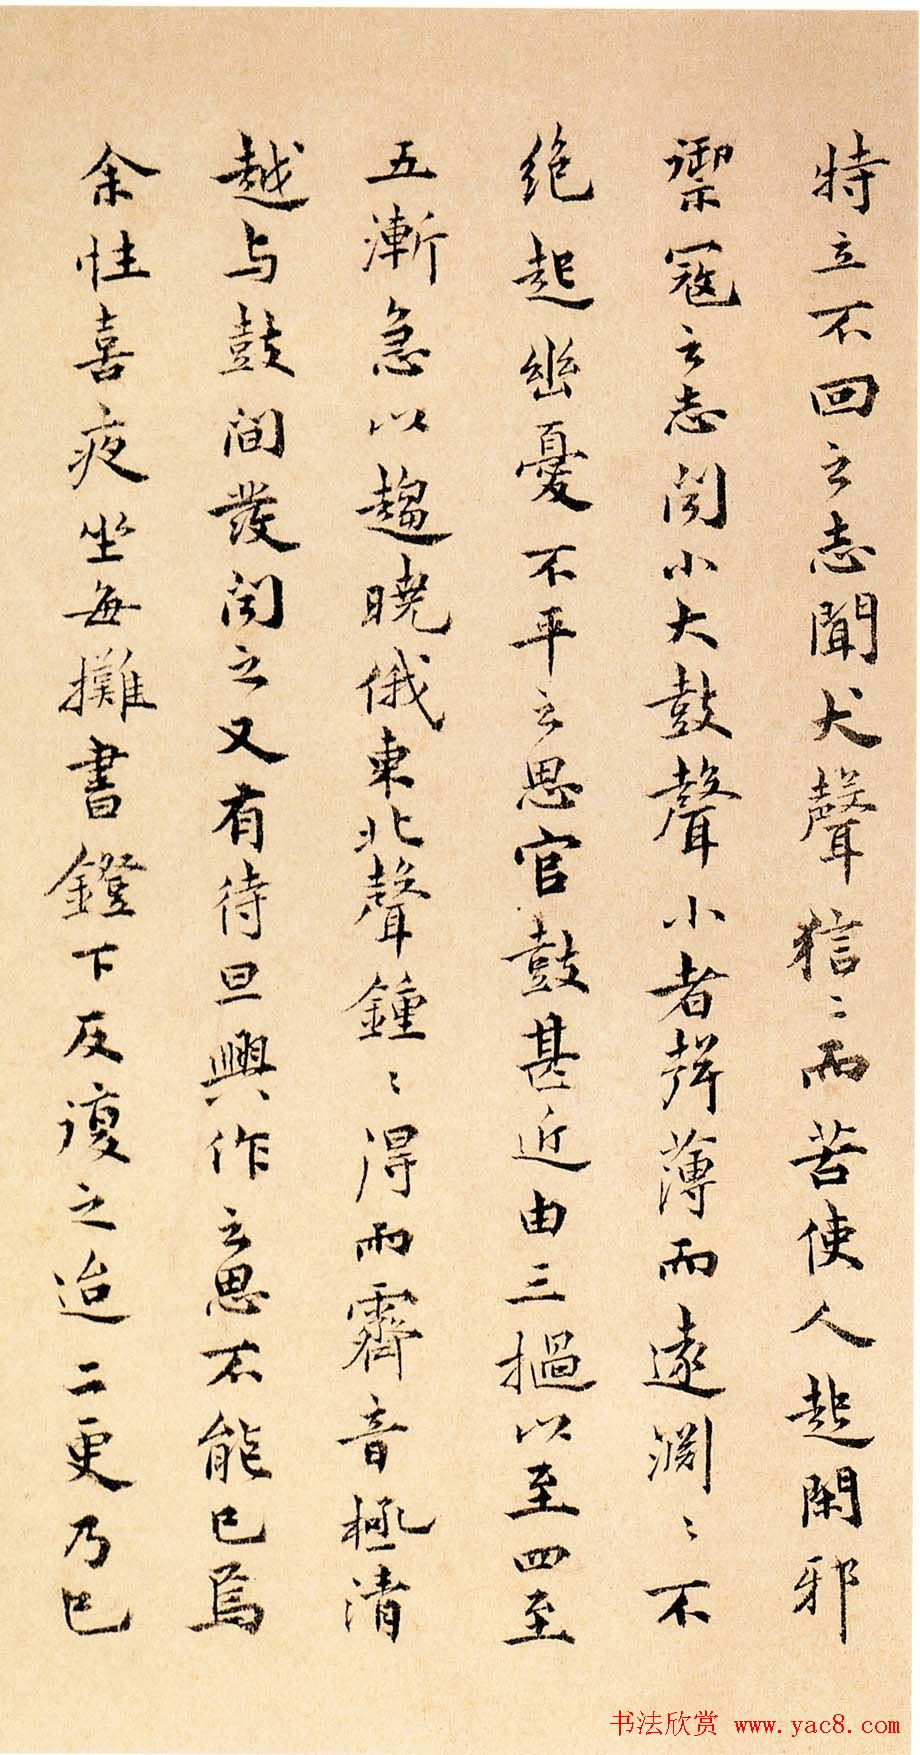 特立不回之志聞犬聲狺〻而苦使人起閑邪
禦寇之志闻小大鼓聲小者聲薄而遠淵〻不
绝起幽憂不平之思官鼓甚近由三撾以至四至
五漸急以趨曉俄東北聲鍾〻得雨霽音極清
越与鼓間發闻之又有待旦興作之思不能已焉
余性喜夜坐每攤書鐙下反復之迨二更乃已
书法欣赏 www.yac8.com